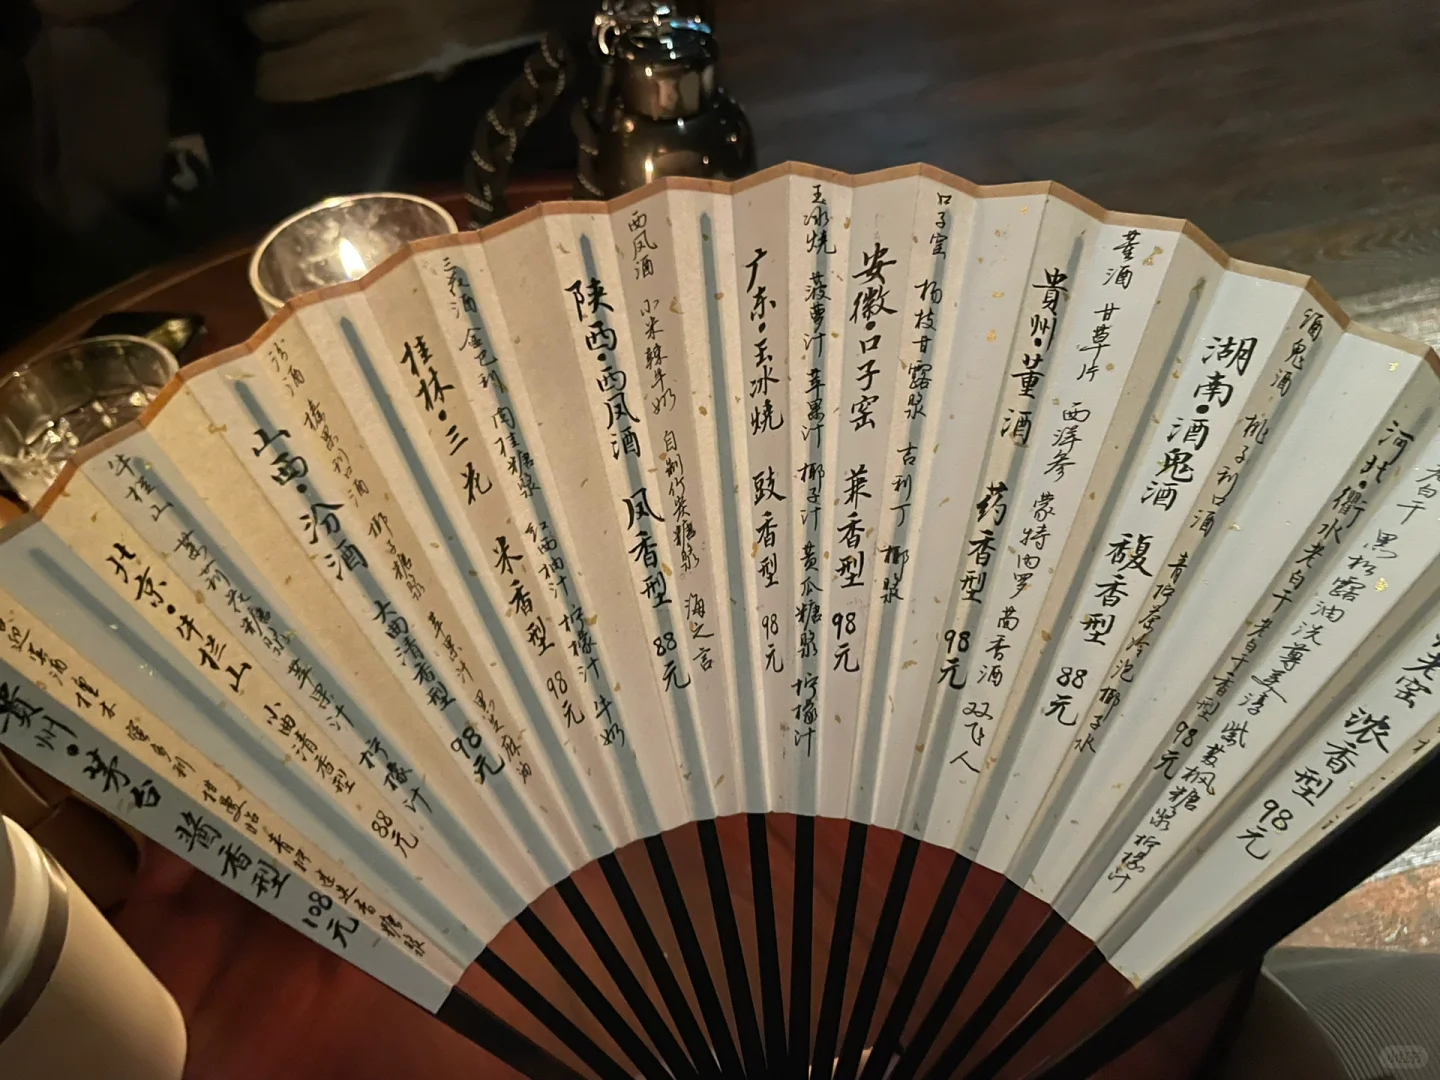 貴州·茅台 酱香型 108元
北京·牛栏山 小曲清香型 88元
牛栏山 茉莉花糖浆 苹果汁 柠檬汁
山西·汾酒 大曲清香型 98元
汾酒 榛果利口酒 椰子糖浆 苹果汁 黑芝麻油
桂林·三花 米香型 98元
三花酒 金巴利 肉桂糖浆 红西柚汁 柠檬汁 牛奶
陕西·西凤酒 凤香型 88元
西凤酒 小米辣牛奶 自制竹炭糖浆 海之言
广东·玉冰烧 豉香型 98元
玉冰烧 菠萝汁 苹果汁 椰子汁 黄瓜糖浆 柠檬汁
安徽·口子窖 兼香型 98元
口子窖 杨枝甘露浆 吉利丁 椰浆
貴州·董酒 药香型 98元
董酒 甘草片 西洋参 蒙特内罗 茴香酒 双飞人
湖南·酒鬼酒 馥香型 88元
酒鬼酒 桃子利口酒 青柠茶冷泡椰子水
河北·衡水老白干 老白干香型 98元
老白干 黑松露油洗尊美淳 紫苏枫糖浆 柠檬汁
老窖 浓香型 98元